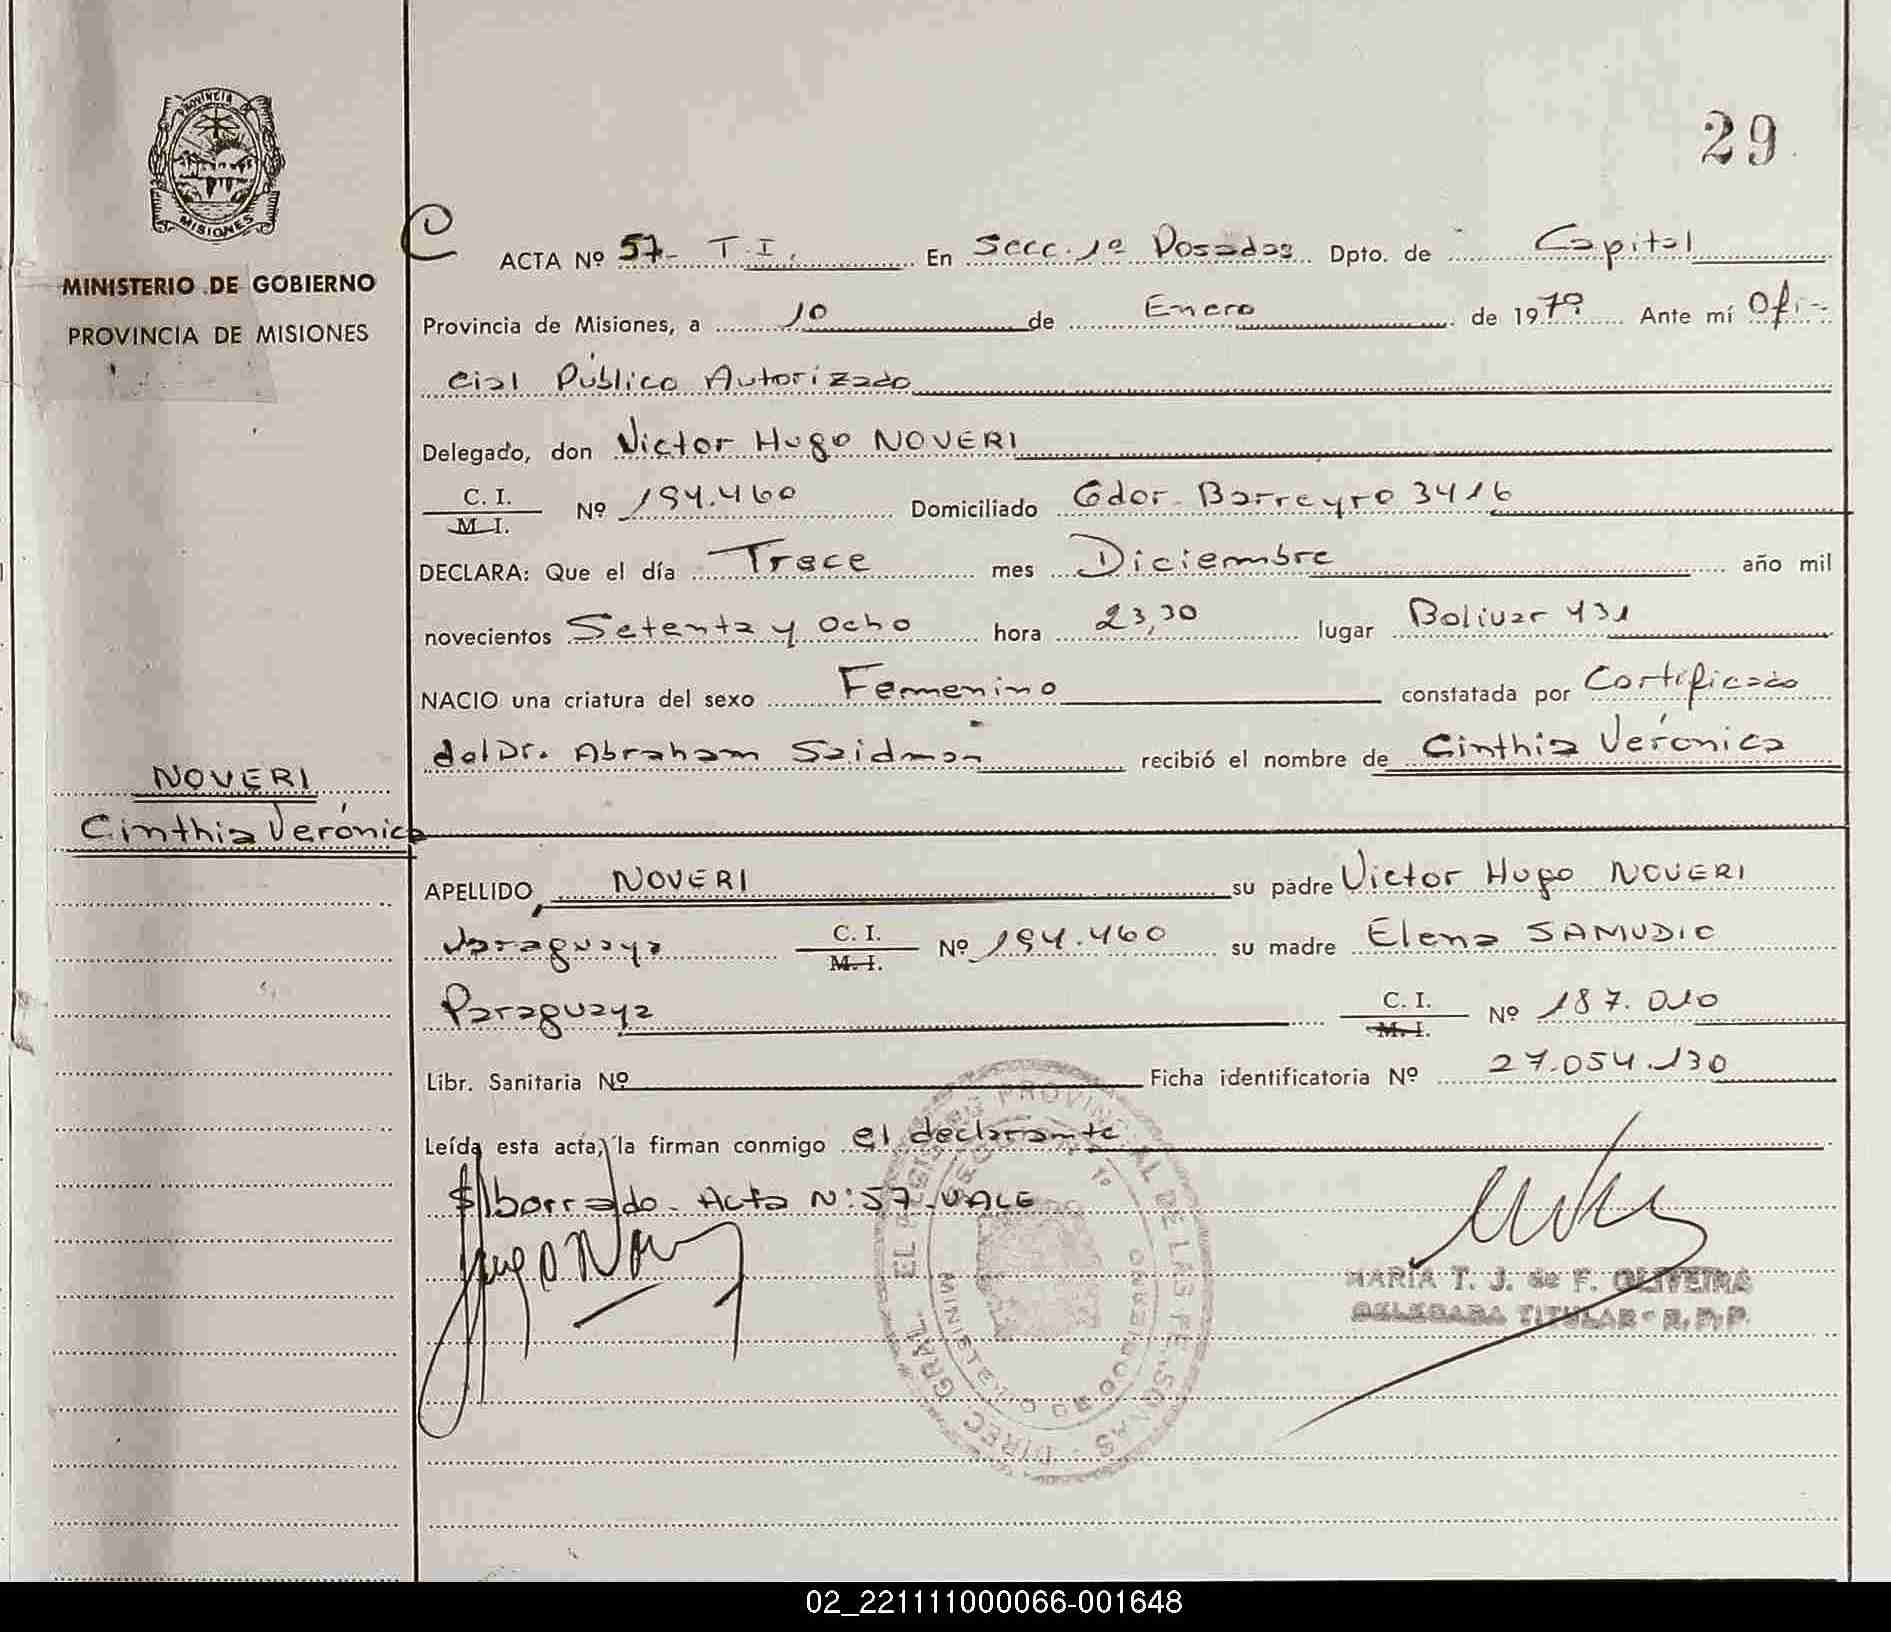 PROVINCIA DE
MISIONES
MINISTERIO DE GOBIERNO
PROVINCIA DE MISIONES
29
C
ACTA Nº 57- T.I. En Secc. 1ª Posadas Dpto. de Capital
Provincia de Misiones, a 10 de Enero de 1979 Ante mí Ofi-
cial Público Autorizado
Delegado, don Victor Hugo NOVERI
C. I.
M. I. Nº 194.460 Domiciliado Gdor. Barreyro 3416
DECLARA: Que el día Trece mes Diciembre año mil
novecientos Setenta y Ocho hora 23,30 lugar Bolivar 431
NACIO una criatura del sexo Femenino constatada por Certificado
del Dr. Abraham Saidman recibió el nombre de Cinthia Verónica
NOVERI
Cinthia Verónica
APELLIDO NOVERI su padre Victor Hugo NOVERI
Paraguaya C. I.
M. I. Nº 194.460 su madre Elena SAMUDIO
Paraguaya C. I.
M. I. Nº 187.010
Libr. Sanitaria Nº Ficha identificatoria Nº 27.054.130
Leída esta acta, la firman conmigo el declarante
S/borrado. Acta N: 57. VALE
DIREC. GRAL. PROVINCIAL DE LAS PERSONAS
MARIA T. J. de F. OLIVEIRA
DELEGADA TITULAR - R. P. P.
02_221111000066-001648